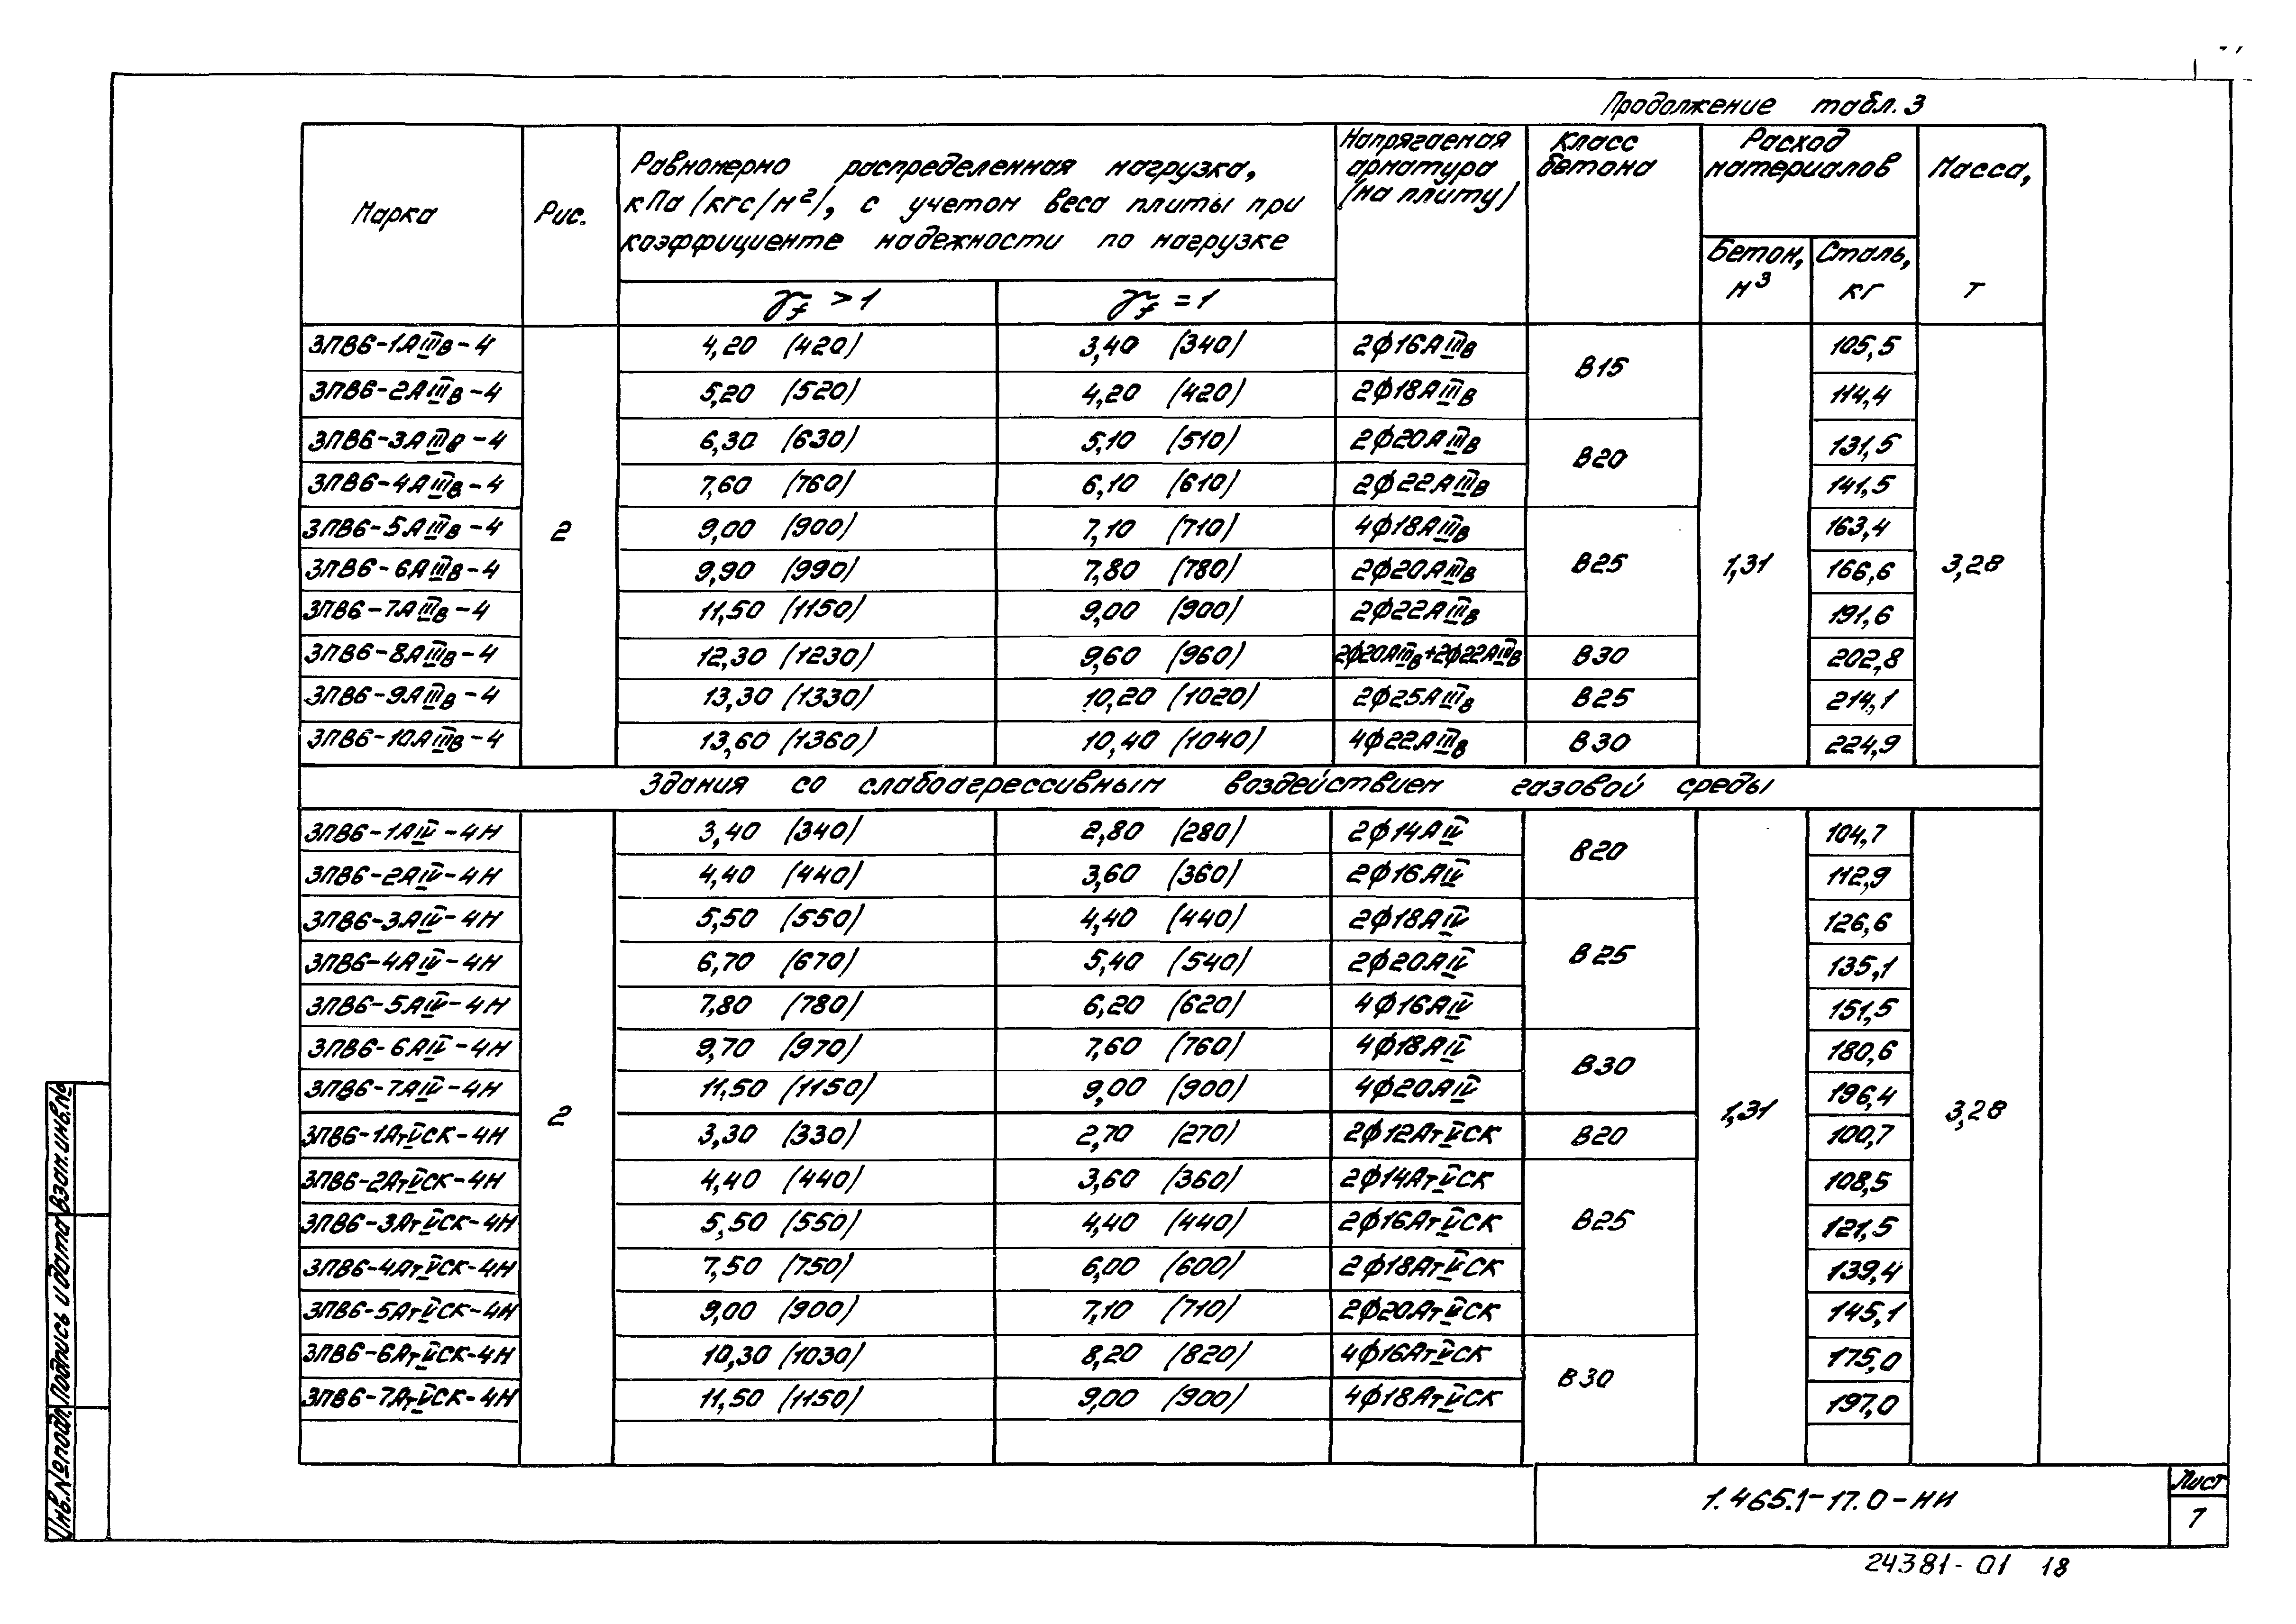 Продолжение табл. 3
Марка
Рис.
Равномерно распределенная нагрузка,
кПа (кгс/м²), с учетом веса плиты при
коэффициенте надежности по нагрузке
γf > 1
γf = 1
Напрягаемая
арматура
(на плиту)
Класс
бетона
Расход
материалов
Бетон,
м³
Сталь,
кг
Масса,
т
3ПВ6-1АIIIв-4 4,20 (420) 3,40 (340) 2ф16АIIIв В15 105,5
3ПВ6-2АIIIв-4 5,20 (520) 4,20 (420) 2ф18АIIIв 114,4
3ПВ6-3АIIIв-4 6,30 (630) 5,10 (510) 2ф20АIIIв В20 131,5
3ПВ6-4АIIIв-4 7,60 (760) 6,10 (610) 2ф22АIIIв 141,5
3ПВ6-5АIIIв-4 2 9,00 (900) 7,10 (710) 4ф18АIIIв 163,4
3ПВ6-6АIIIв-4 9,90 (990) 7,80 (780) 2ф20АIIIв В25 1,31 166,6 3,28
3ПВ6-7АIIIв-4 11,50 (1150) 9,00 (900) 2ф22АIIIв 191,6
3ПВ6-8АIIIв-4 12,30 (1230) 9,60 (960) 2ф20АIIIв+2ф22АIIIв В30 202,8
3ПВ6-9АIIIв-4 13,30 (1330) 10,20 (1020) 2ф25АIIIв В25 214,1
3ПВ6-10АIIIв-4 13,60 (1360) 10,40 (1040) 4ф22АIIIв В30 224,9
Здания со слабоагрессивным воздействием газовой среды
3ПВ6-1АIV-4Н 3,40 (340) 2,80 (280) 2ф14АIV В20 104,7
3ПВ6-2АIV-4Н 4,40 (440) 3,60 (360) 2ф16АIV 112,9
3ПВ6-3АIV-4Н 5,50 (550) 4,40 (440) 2ф18АIV 126,6
3ПВ6-4АIV-4Н 6,70 (670) 5,40 (540) 2ф20АIV В25 135,1
3ПВ6-5АIV-4Н 7,80 (780) 6,20 (620) 4ф16АIV 151,5
3ПВ6-6АIV-4Н 9,70 (970) 7,60 (760) 4ф18АIV В30 180,6
3ПВ6-7АIV-4Н 2 11,50 (1150) 9,00 (900) 4ф20АIV 1,31 196,4 3,28
3ПВ6-1АтVСК-4Н 3,30 (330) 2,70 (270) 2ф12АтVСК В20 100,7
3ПВ6-2АтVСК-4Н 4,40 (440) 3,60 (360) 2ф14АтVСК 108,5
3ПВ6-3АтVСК-4Н 5,50 (550) 4,40 (440) 2ф16АтVСК В25 121,5
3ПВ6-4АтVСК-4Н 7,50 (750) 6,00 (600) 2ф18АтVСК 139,4
3ПВ6-5АтVСК-4Н 9,00 (900) 7,10 (710) 2ф20АтVСК 145,1
3ПВ6-6АтVСК-4Н 10,30 (1030) 8,20 (820) 4ф16АтVСК В30 175,0
3ПВ6-7АтVСК-4Н 11,50 (1150) 9,00 (900) 4ф18АтVСК 197,0
Инв.№подл. Подпись и дата Взам.инв.№
1.465.1-17.0-НИ
Лист
7
24381-01 18